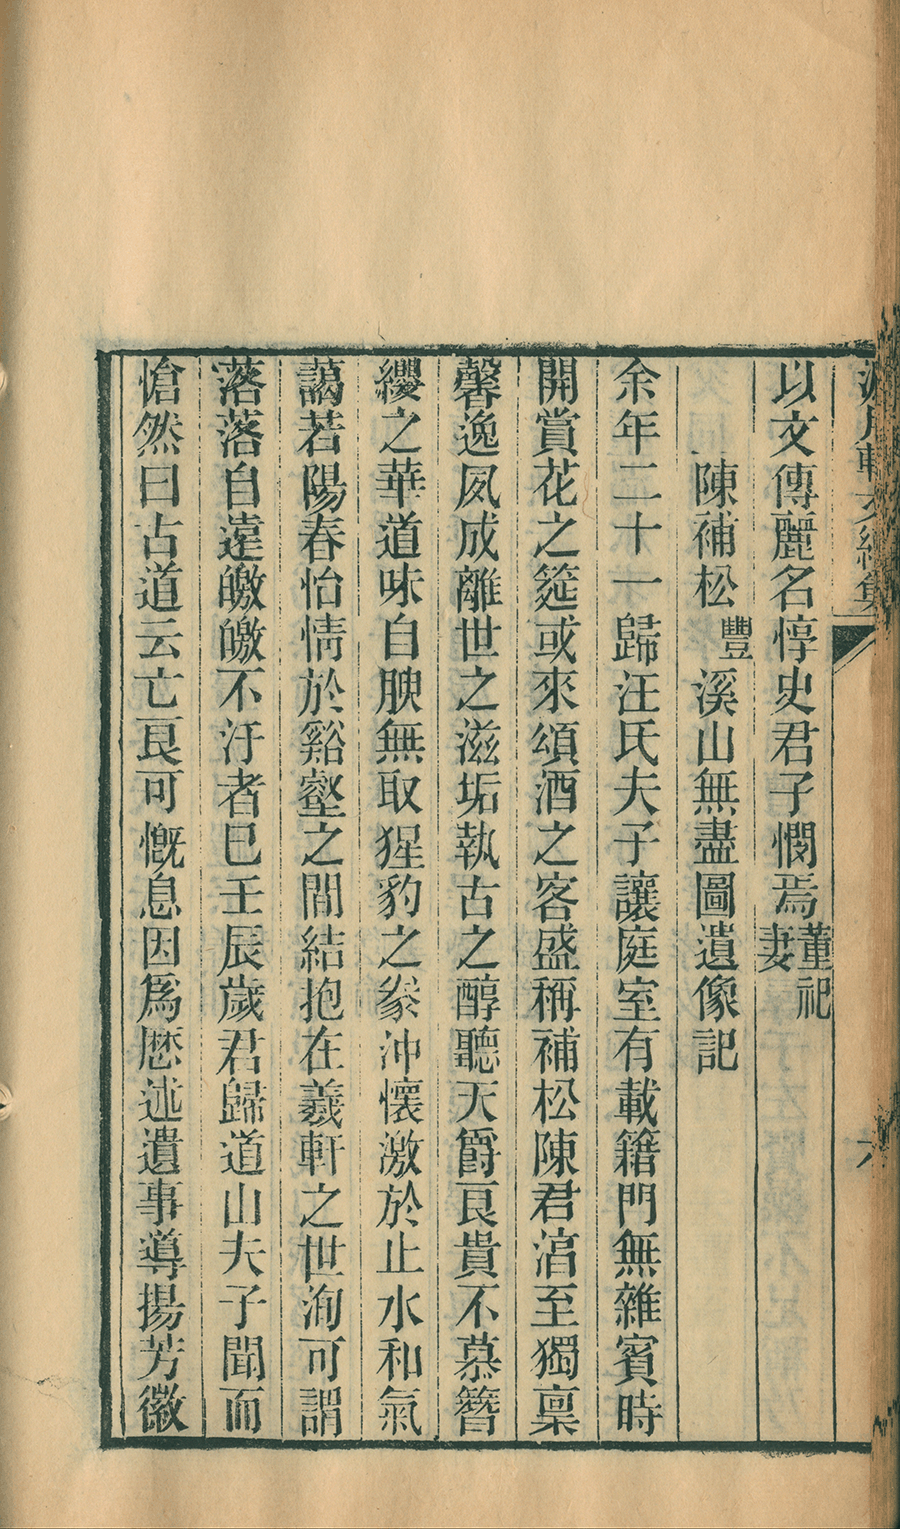 濾月軒文續集
六
以文傳麗名惇史君子憫焉董祀妻
陳補松豐溪山無盡圖遺像記
余年二十一歸汪氏夫子讓庭室有載籍門無雜賓時
開賞花之筵或來頌酒之客盛稱補松陳君湻至獨稟
馨逸夙成離世之滋垢執古之醇聽天爵良貴不慕簪
纓之華道味自腴無取猩豹之豢沖懷激於止水和氣
譪若陽春怡情於谿壑之間結抱在羲軒之世洵可謂
落落自遠皦皦不汙者已壬辰歲君歸道山夫子聞而
愴然曰古道云亡良可慨息因爲厯述遺事導揚芳徽